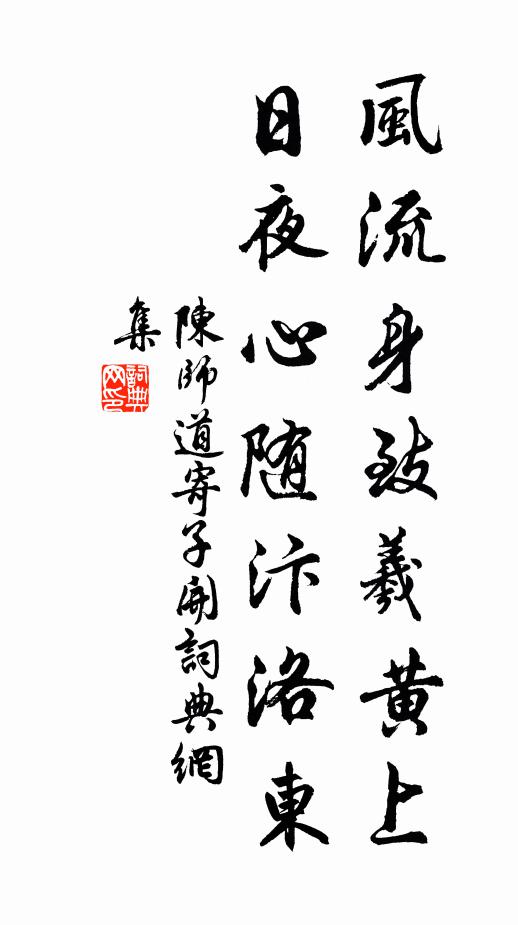 風流身致羲黃上
日夜心随汴洛東
陳師道寄子開詞典網
集
詞典
网印